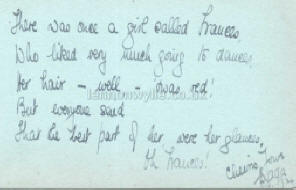 There was once a girl called Frances
Who liked very much going to dances
Her hair - well - 'twas red!
But everyone said
That the best part of her were her glances.
Oh Frances!
Cheerio
lennonwylie.co.uk